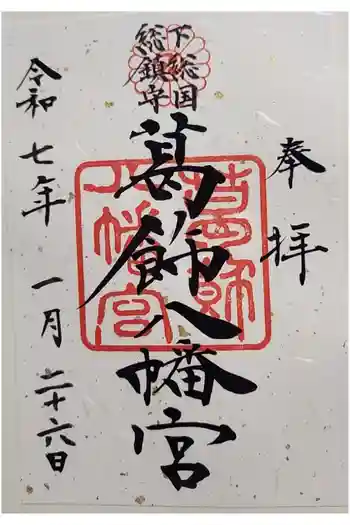 奉拝
下総国
総鎮守
葛飾八幡宮
令和七年一月二十六日
葛飾
八幡宮